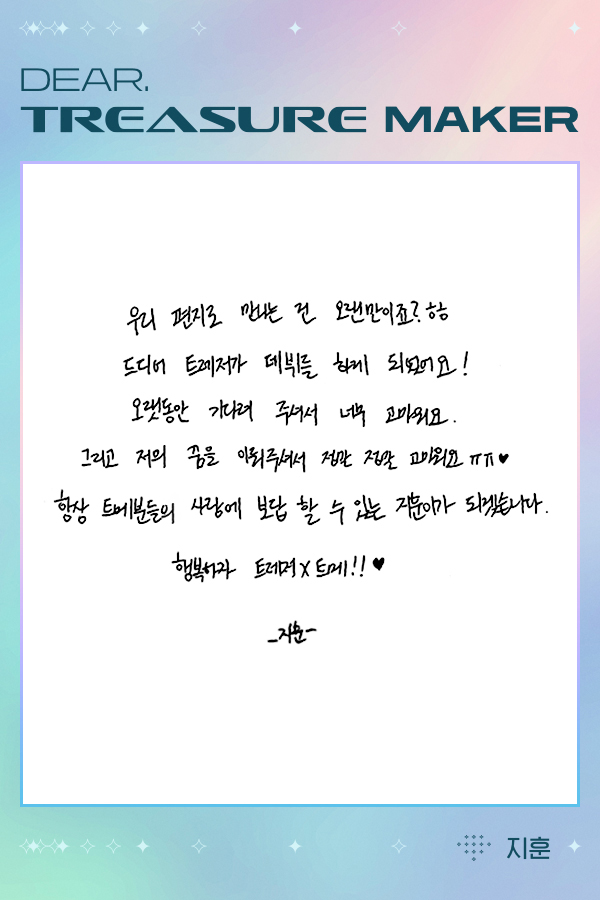 DEAR.
TREASURE MAKER
우리 편지로 만나는 건 오랜만이죠? ㅎㅎ
드디어 트레저가 데뷔를 하게 되었어요!
오랫동안 기다려 주셔서 너무 고마워요.
그리고 저의 꿈을 이뤄주셔서 정말 정말 고마워요 ㅠㅠ♥
항상 트메분들의 사랑에 보답 할 수 있는 지훈이가 되겠습니다.
행복하자 트레저 X 트메!! ♥
-지훈-
지훈